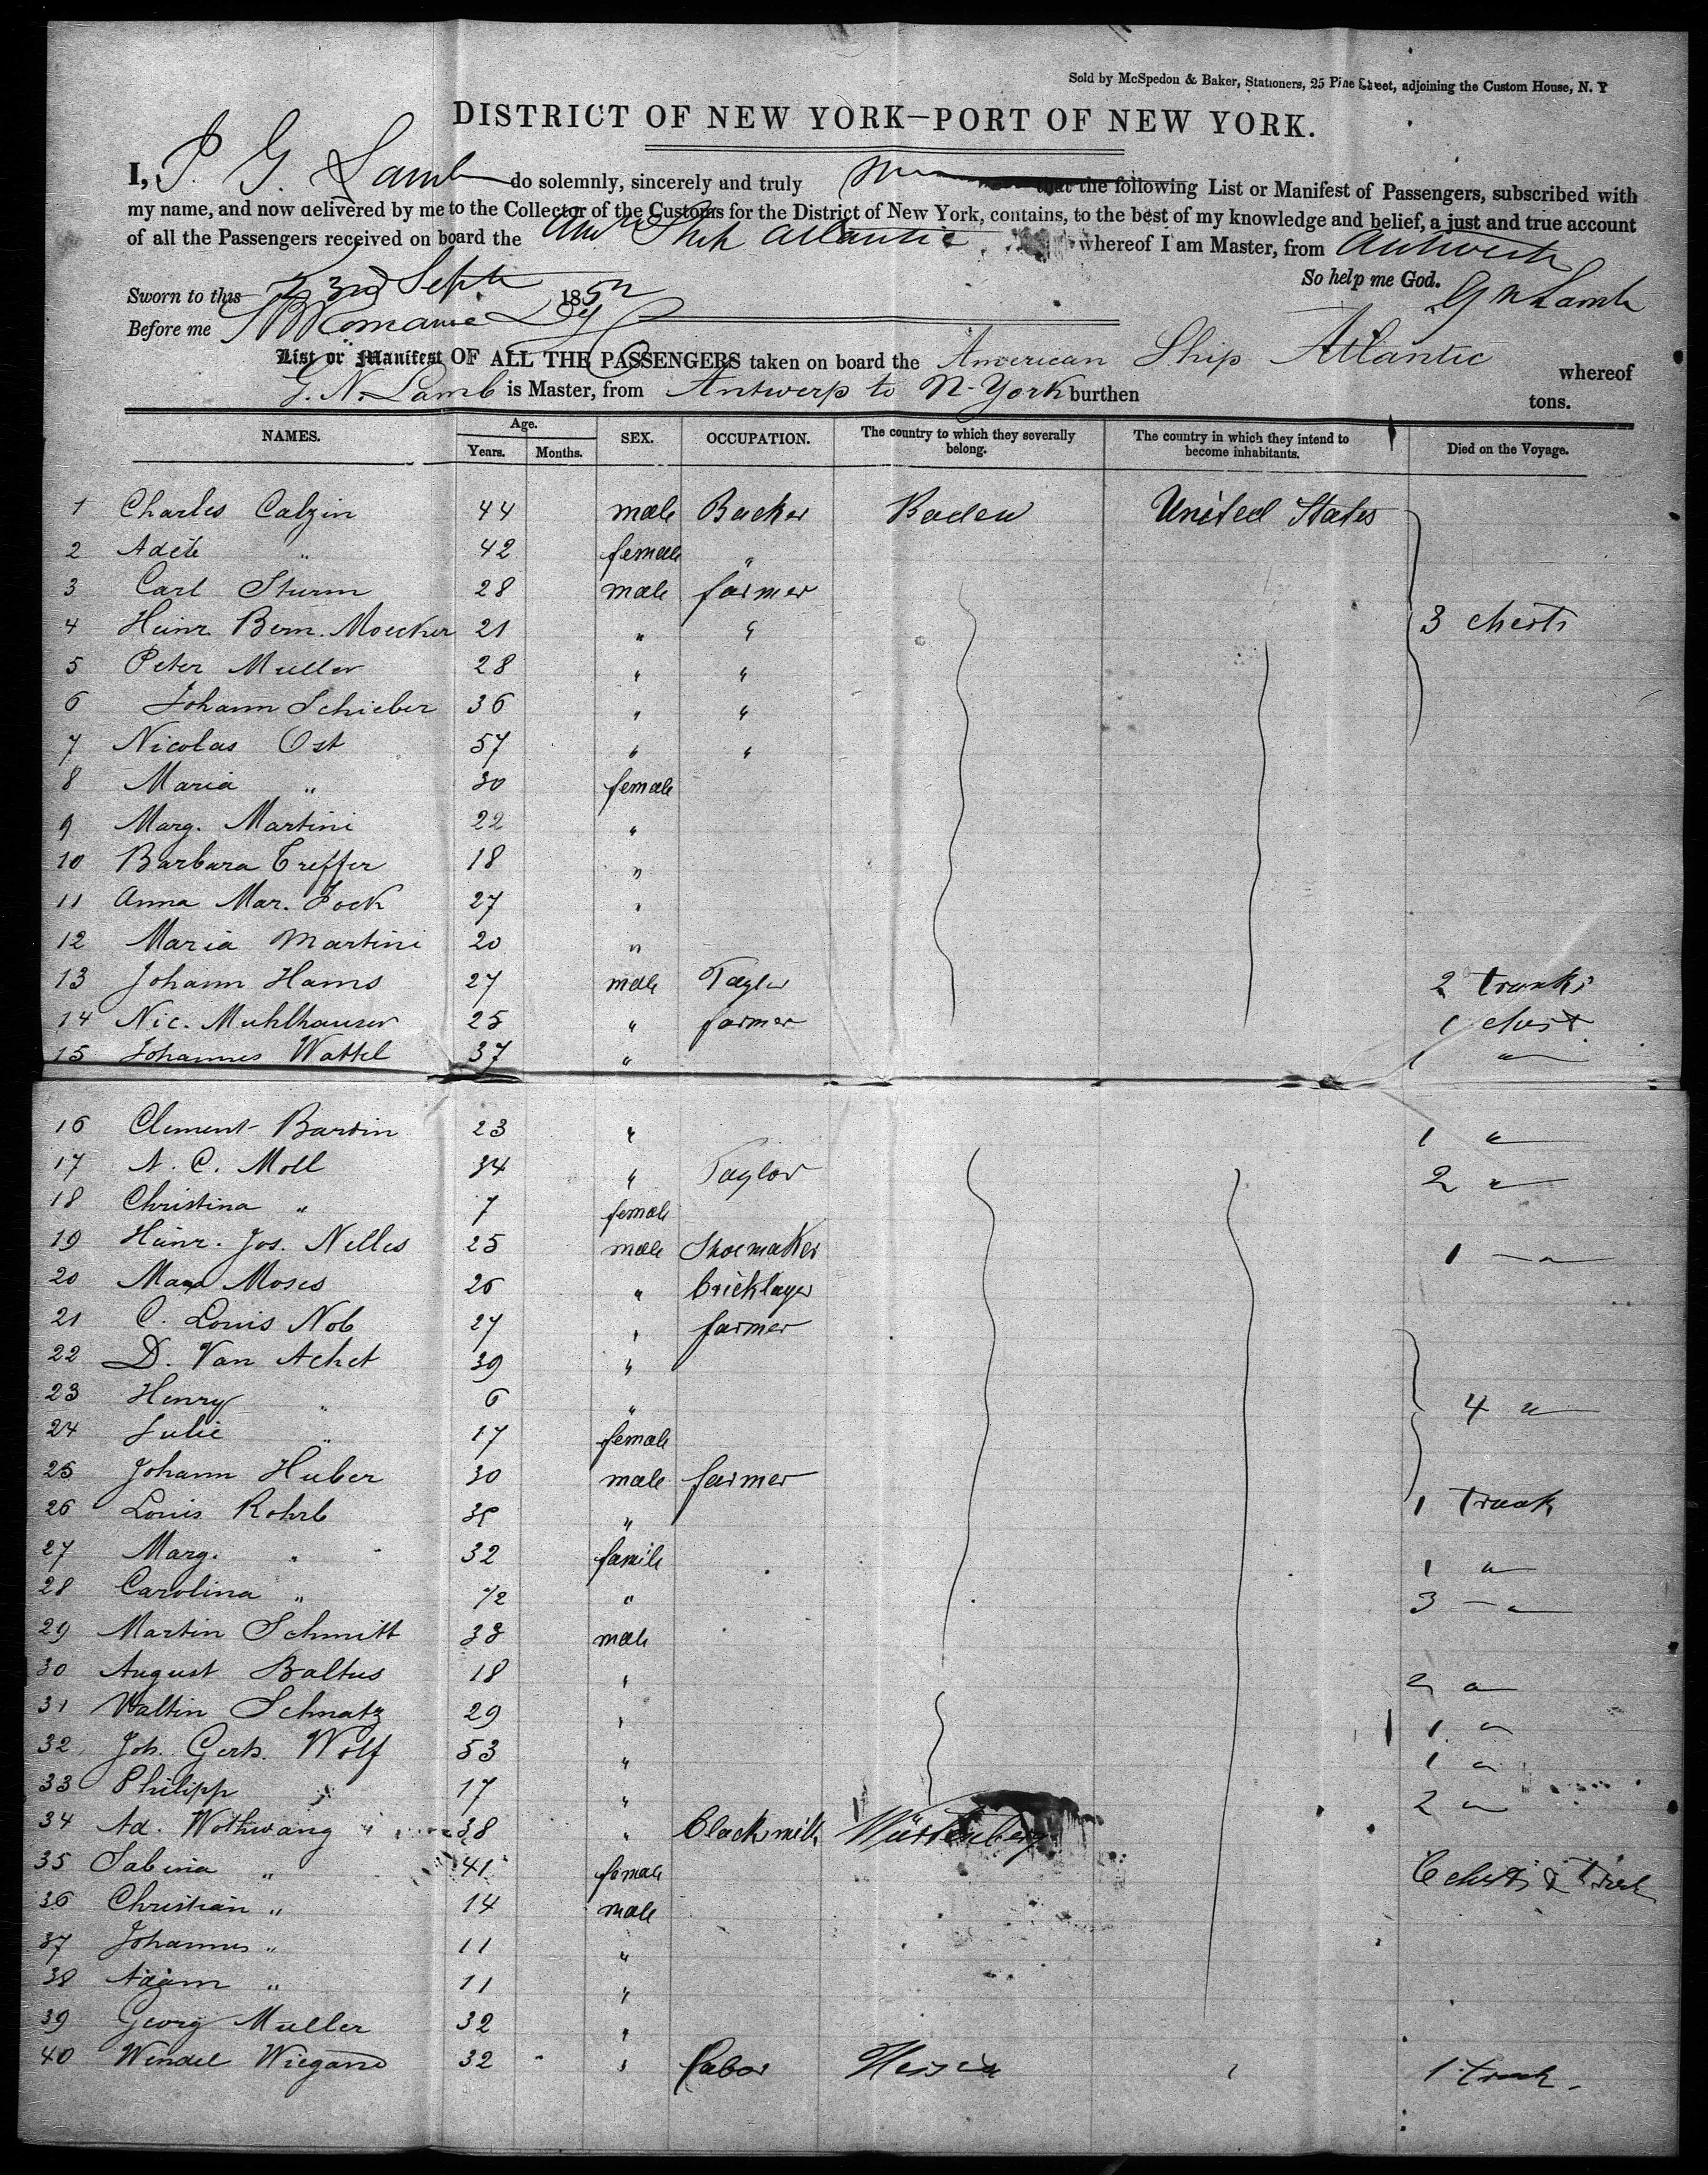 Sold by McSpedon & Baker, Stationers, 25 Pine Street, adjoining the Custom House, N. Y
DISTRICT OF NEW YORK—PORT OF NEW YORK.
I, P. G. Lamb do solemnly, sincerely and truly that the following List or Manifest of Passengers, subscribed with
my name, and now delivered by me to the Collector of the Customs for the District of New York, contains, to the best of my knowledge and belief, a just and true account
of all the Passengers received on board the Am Ship Atlantic whereof I am Master, from Antwerp
So help me God.
Sworn to this 23rd Sept 185 G N Lamb
Before me
List or Manifest OF ALL THE PASSENGERS taken on board the American Ship Atlantic whereof
G. N. Lamb is Master, from Antwerp to N-York burthen tons.
NAMES. Age. Years. Months. SEX. OCCUPATION. The country to which they severally belong. The country in which they intend to become inhabitants. Died on the Voyage.
1 Charles Calzin 44 male Backer Baden United States
2 Adele " 42 female "
3 Carl Sturm 28 male farmer
4 Heinr. Bern. Moecker 21 " " 3 chests
5 Peter Muller 28 " "
6 Johann Schieber 36 " "
7 Nicolas Ost 57 " "
8 Maria " 30 female
9 Marg. Martini 22 "
10 Barbara Treffer 18 "
11 Anna Mar. Fock 27 "
12 Maria Martini 20 "
13 Johann Hams 27 male Taylor 2 trunks
14 Nic. Muhlhauser 25 " farmer 1 chest
15 Johannes Wattel 37 " 1 "
16 Clement Bardin 23 " 1 "
17 N. C. Moll 34 " Taylor 2 "
18 Christina " 7 female
19 Heinr. Jos. Nelles 25 male Shoemaker 1 "
20 Moses 26 " bricklayer
21 C. Louis Nob 27 " farmer
22 D. Van Achet 39 "
23 Henry " 6 " 4 "
24 Julie " 17 female
25 Johann Huber 30 male farmer
26 Louis Rohrb " 1 Trunk
27 Marg. " 32 famile 1 "
28 Carolina " 1/2 " 3 "
29 Martin Schmitt 33 male
30 August Baltus 18 " 2 "
31 Valtin Schnatz 29 " 1 "
32 Joh. Gerh. Wolf 53 " 1 "
33 Philipp " 17 " 2 "
34 Ad. Wothwang 38 " blacksmith Würtenberg
35 Sabina " 41 female 6 chests &
36 Christian " 14 male
37 Johannes " 11 "
38 Adam " 11 "
39 Georg Müller 32 "
40 Wendel Wiegand 32 " labor Hessia " 1 trunk